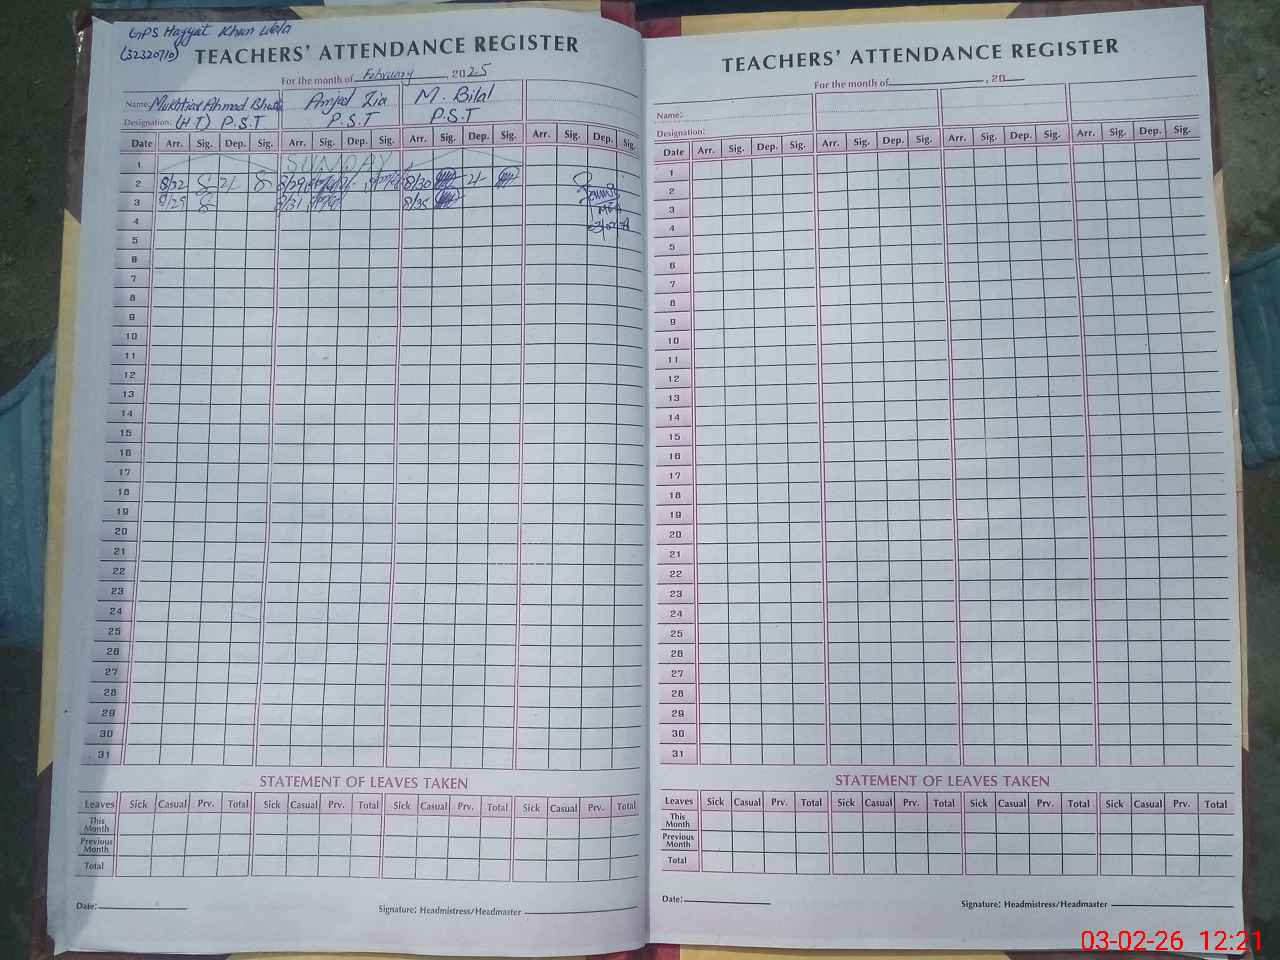 GPS Hayyat Khan Wala
(32320710)
TEACHERS' ATTENDANCE REGISTER
For the month of February, 2025
Name: Mukhtiar Ahmad Bhutta Amjad Zia M. Bilal
Designation: (H.T) P.S.T P.S.T P.S.T
Date Arr. Sig. Dep. Sig. Arr. Sig. Dep. Sig. Arr. Sig. Dep. Sig. Arr. Sig. Dep. Sig.
1 SUNDAY
2 8/22 2/ 8/29 8/30 2/
3 8/25 8/31 8/35
4
5
6
7
8
9
10
11
12
13
14
15
16
17
18
19
20
21
22
23
24
25
26
27
28
29
30
31
STATEMENT OF LEAVES TAKEN
Leaves Sick Casual Prv. Total Sick Casual Prv. Total Sick Casual Prv. Total Sick Casual Prv. Total
This Month
Previous Month
Total
Date:
Signature: Headmistress/Headmaster
TEACHERS' ATTENDANCE REGISTER
For the month of , 20
Name:
Designation:
Date Arr. Sig. Dep. Sig. Arr. Sig. Dep. Sig. Arr. Sig. Dep. Sig. Arr. Sig. Dep. Sig.
1
2
3
4
5
6
7
8
9
10
11
12
13
14
15
16
17
18
19
20
21
22
23
24
25
26
27
28
29
30
31
STATEMENT OF LEAVES TAKEN
Leaves Sick Casual Prv. Total Sick Casual Prv. Total Sick Casual Prv. Total Sick Casual Prv. Total
This Month
Previous Month
Total
Date:
Signature: Headmistress/Headmaster
03-02-26 12:21